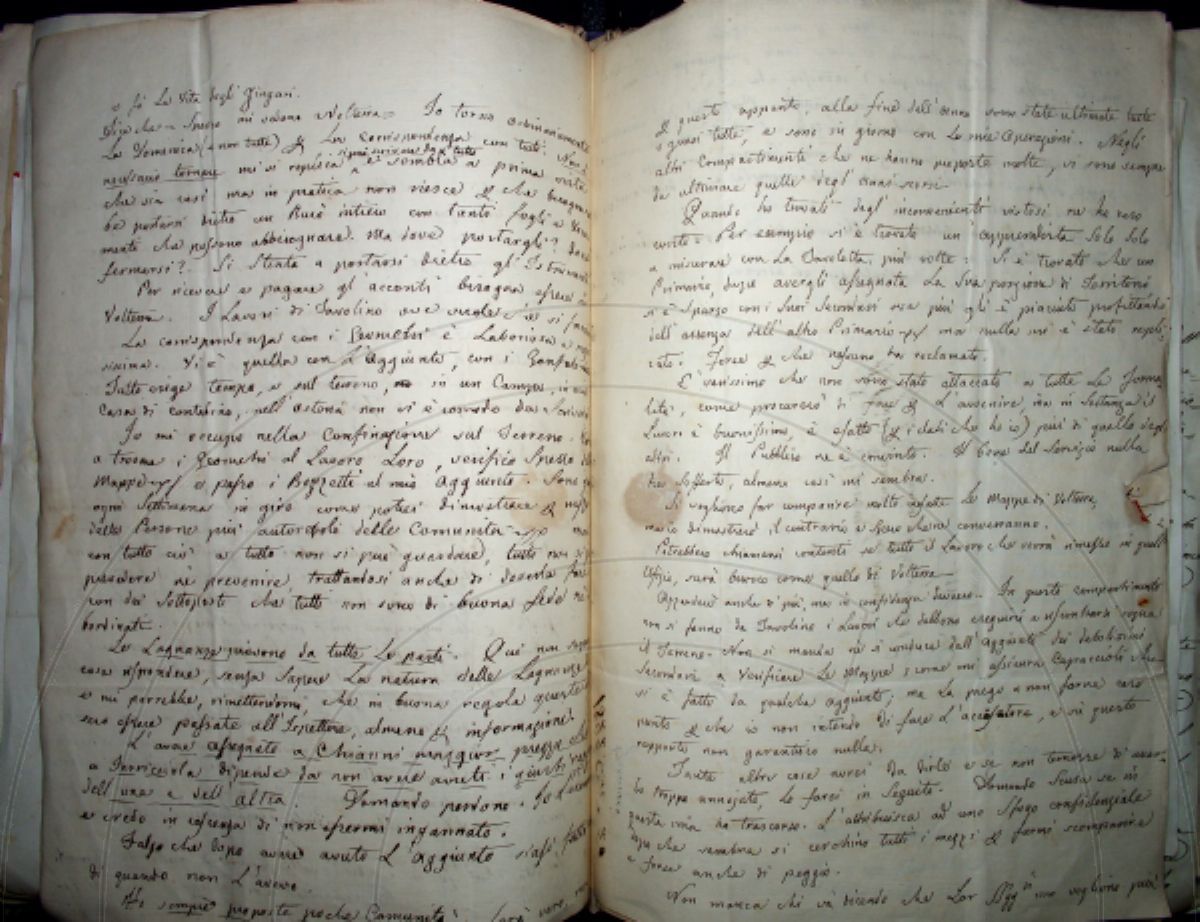 e fò La Vita degli Zingari.
Dice che = Spesso in Volterra = Io torno ordinariamente
La Domenica (e non tutte) & La Corrispondenza con tutti
necessario tornare mi si replica e sembra a prima vista
che sia così ma in pratica non riesce & che bisogna
portarsi dietro un intiero con tanti fogli e
menti che possono abbisognare. Ma dove portargli? dove
fermarsi? Si stenta a portarsi dietro gl'Istrumenti
Per ricevere e pagare gl'acconti bisogna essere a
Volterra. I Lavori di Tavolino ove vuole che si facciano
La corrispondenza con i Geometri è Laboriosa
sissima. Vi è quella con L'Aggiunto, con i Gonfalonieri
Tutto esige tempo, e sul terreno, in un Campo, in una
Casa di contadino, nell'osteria non vi è comodo da scrivere
Io mi occupo nella Confinazione sul Terreno.
a trovare i Geometri al Lavoro Loro, verifico spesso le
Mappe e passo i Bozzetti al mio Aggiunto. Sono
ogni Settimana in giro come potrei dimostrare &
delle Persone più autorevoli delle Comunità
con tutto ciò a tutto non si può guardare, tutto non si
prevedere nè prevenire trattandosi anche di doverla fare
con dei Sottoposti che tutti non sono di buona fede nè
bordinati.
Le Lagnanze piovono da tutte le parti. Qui non saprei
cosa rispondere, senza sapere La natura delle Lagnanze
e mi parrebbe, rimettendomi, che in buona regola queste
essere passate all'Ispettore, almeno & informazione.
L'avere assegnato a Chianni maggior prezzo che
a Terricciola dipende da non avere avuti i giusti
dell'una e dell'altra. Domando perdono. Io
e credo in coscienza di non essermi ingannato.
Falso che dopo avere avuto L'aggiunto siasi fatto
di quando non L'avevo.
Ho sempre proposte poche Comunità. Sarà vero,
& questo appunto, alla fine dell'anno sono state ultimate tutte
o quasi tutte, e sono in giorno con le mie Operazioni. Negli
altri Compartimenti che ne hanno proposte molte, vi sono sempre
da ultimare quelle degl'anni scorsi.
Quando ho trovati degl'inconvenienti vistosi ne ho reso
conto. Per esempio si è trovato un'apprendista Solo Solo
a misurare con La Tavoletta, più volte: Si è trovato che un
Primario, dopo avergli assegnata La Sua porzione di Territorio
si è sparso con i Suoi Secondari ove più gli è piaciuto profittando
dell'assenza dell'altro Primario ma nulla mi è stato repli-
cato. Forse & che nessuno ha reclamato.
E' verissimo che non sono stato attaccato a tutte Le forma
lità, come procurerò di fare & L'avvenire, ma in sostanza il
Lavoro è buonissimo, è esatto (& i dati che ho io) più di quello degli
altri. Il Pubblico ne è convinto. Il bene del Servizio nulla
ha sofferto, almeno così mi sembra.
Si vogliono far comparire molto Le Mappe di Volterra,
dimostrare il contrario e forse che ne converranno.
Potrebbero chiamarsi contenti se tutto il Lavoro che verrà rimesso in quell'
Uffizio, sarà buono come quello di Volterra.
Apprenderà anche di più, ma in confidenza davvero. In questo compartimento
non si fanno da Tavolino i Lavori che debbono eseguirsi e riscontrarsi sopra
il Terreno. Non si manda nè si conduce dall'Aggiunto dei debolissimi
Secondari a Verificare Le Mappe, come mi assicura Capraccioli che
si è fatto da qualche aggiunto, ma La prego a non farne caso
punto & che io non intendo di fare L'accusatore, e in questo
rapporto non garantisco nulla.
Tante altre cose avrei da dirle e se non temessi di aver-
la troppo annojata, lo farei in Seguito. Domando Scusa se in
questa mia ho trascorso. L'attribuisca ad uno sfogo confidenziale
dopo che sembra si cerchino tutti i mezzi & farmi scomparire
e forse anche di peggio.
Non manca chi và dicendo che Lor vogliono più